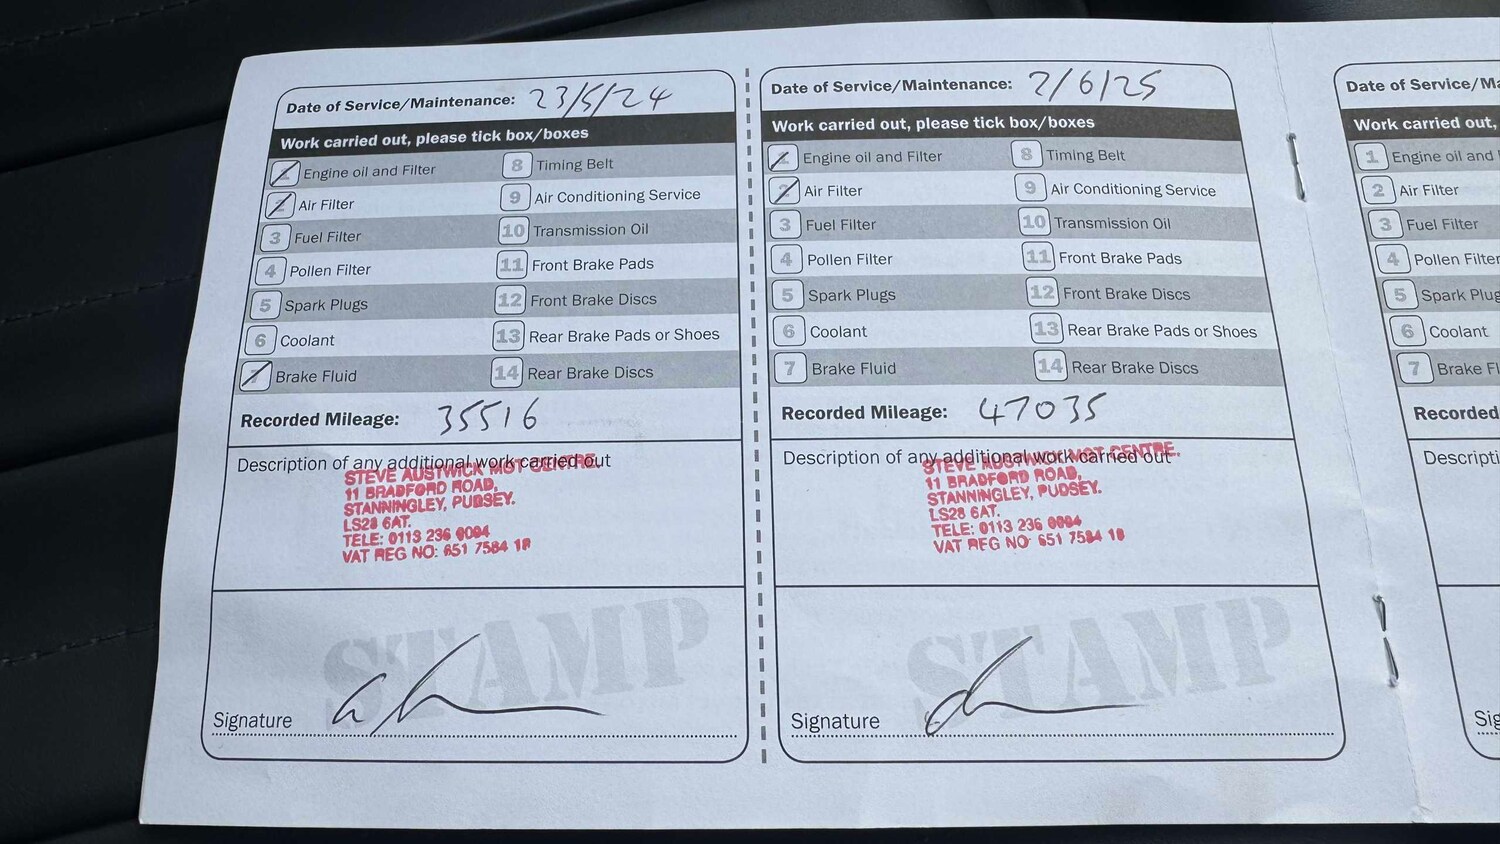 Date of Service/Maintenance: 23/5/24
Work carried out, please tick box/boxes
Engine oil and Filter
8 Timing Belt
Air Filter
9 Air Conditioning Service
3 Fuel Filter
10 Transmission Oil
4 Pollen Filter
11 Front Brake Pads
5 Spark Plugs
12 Front Brake Discs
6 Coolant
13 Rear Brake Pads or Shoes
7 Brake Fluid
14 Rear Brake Discs
Recorded Mileage: 35516
Description of any additional work carried out
STEVE AUSTWICK MOT CENTRE.
11 BRADFORD ROAD,
STANNINGLEY, PUDSEY.
LS28 6AT.
TELE: 0113 236 0094
VAT REG NO: 651 7584 18
STAMP
Signature
Date of Service/Maintenance: 2/6/25
Work carried out, please tick box/boxes
Engine oil and Filter
8 Timing Belt
2 Air Filter
9 Air Conditioning Service
3 Fuel Filter
10 Transmission Oil
4 Pollen Filter
11 Front Brake Pads
5 Spark Plugs
12 Front Brake Discs
6 Coolant
13 Rear Brake Pads or Shoes
7 Brake Fluid
14 Rear Brake Discs
Recorded Mileage: 47035
Description of any additional work carried out
STEVE AUSTWICK MOT CENTRE.
11 BRADFORD ROAD,
STANNINGLEY, PUDSEY.
LS28 6AT.
TELE: 0113 236 0094
VAT REG NO: 651 7584 18
STAMP
Signature
Date of Service/Ma
Work carried out,
1 Engine oil and
2 Air Filter
3 Fuel Filter
4 Pollen Filter
5 Spark Plug
6 Coolant
7 Brake Fl
Recorded
Descripti
Sig